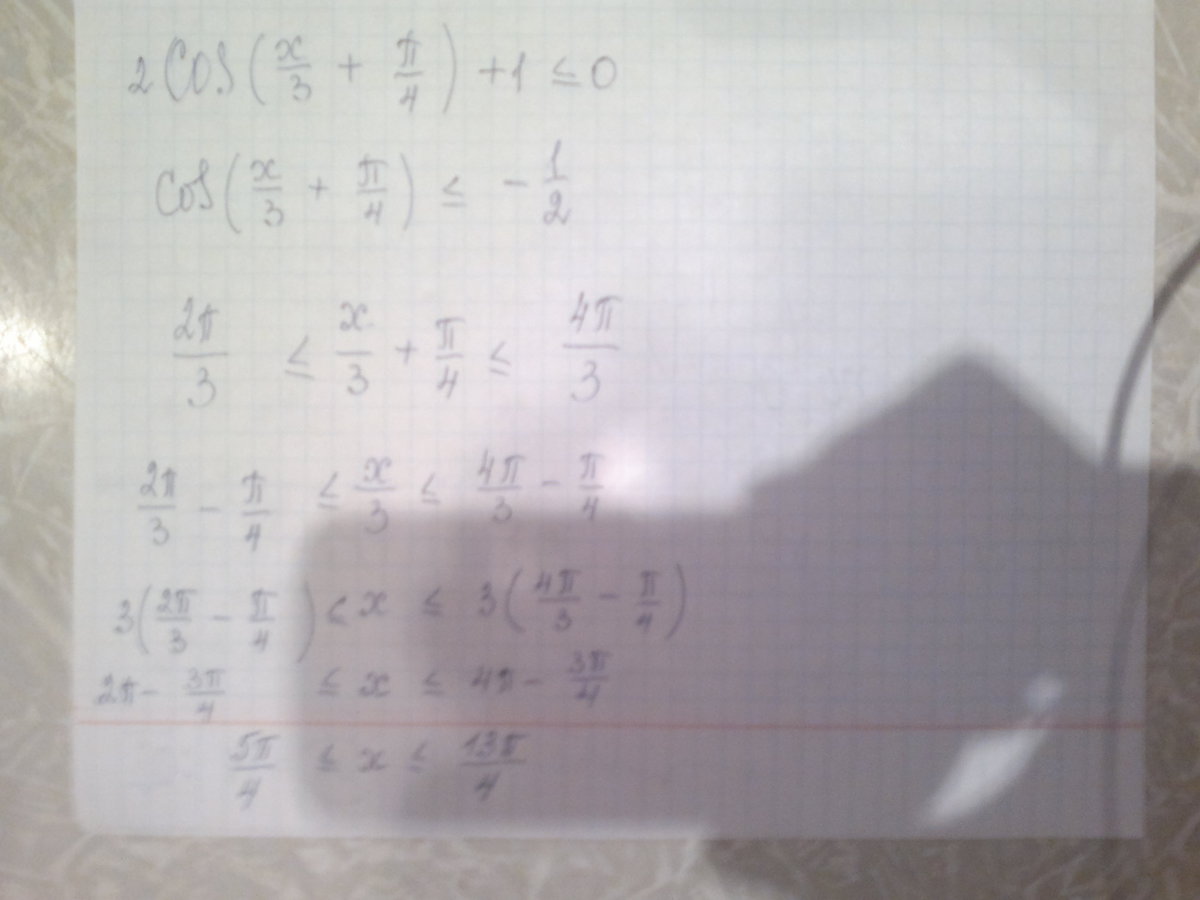 2 cos(x/3 + π/4) + 1 ≤ 0
cos(x/3 + π/4) ≤ - 1/2
2π/3 ≤ x/3 + π/4 ≤ 4π/3
2π/3 - π/4 ≤ x/3 ≤ 4π/3 - π/4
3(2π/3 - π/4) ≤ x ≤ 3(4π/3 - π/4)
2π - 3π/4 ≤ x ≤ 4π - 3π/4
5π/4 ≤ x ≤ 13π/4